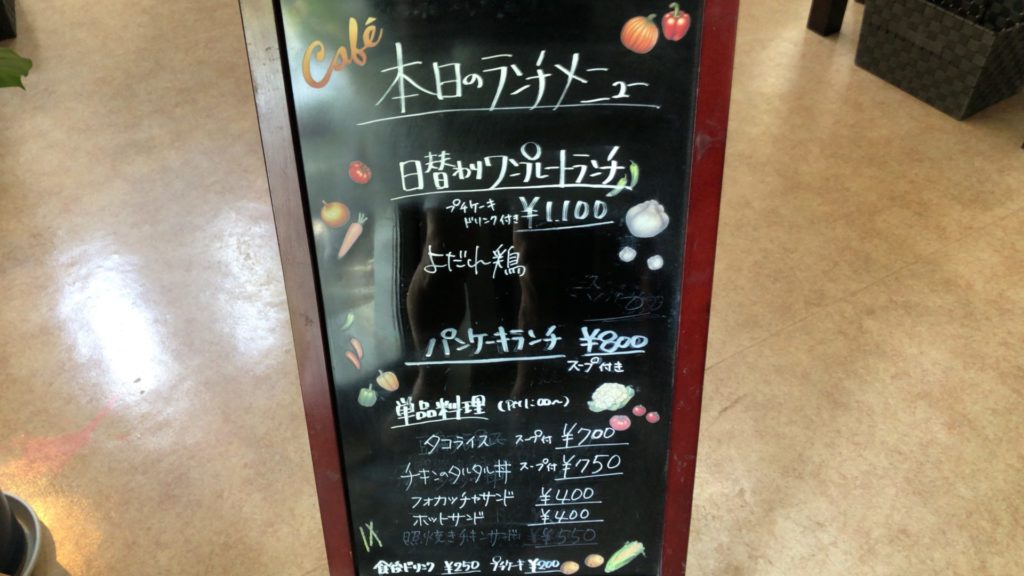 Café
本日のランチメニュー
日替わりワンプレートランチ
プチケーキ
ドリンク付き ¥1,100
よだれ鶏
パンケーキランチ ¥800
スープ付き
単品料理 (PM1:00〜)
タコライス スープ付 ¥700
チキンのタルタル丼 スープ付 ¥750
フォカッチャサンド ¥400
ホットサンド ¥400
照焼きチキンサンド ¥550
食後ドリンク ¥250 プチケーキ ¥200